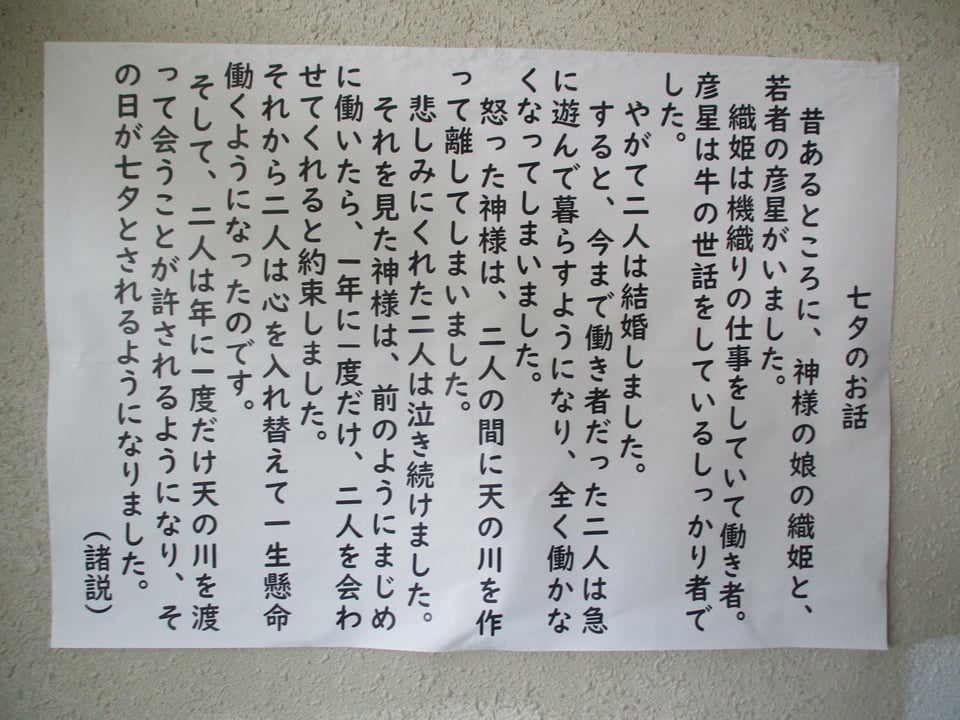 七夕のお話
昔あるところに、神様の娘の織姫と、
若者の彦星がいました。
織姫は機織りの仕事をしていて働き者。
彦星は牛の世話をしているしっかり者で
した。
やがて二人は結婚しました。
すると、今まで働き者だった二人は急
に遊んで暮らすようになり、全く働かな
くなってしまいました。
怒った神様は、二人の間に天の川を作
って離してしまいました。
悲しみにくれた二人は泣き続けました。
それを見た神様は、前のようにまじめ
に働いたら、一年に一度だけ、二人を会わ
せてくれると約束しました。
それから二人は心を入れ替えて一生懸命
働くようになったのです。
そして、二人は年に一度だけ天の川を渡
って会うことが許されるようになり、そ
の日が七夕とされるようになりました。
（諸説）